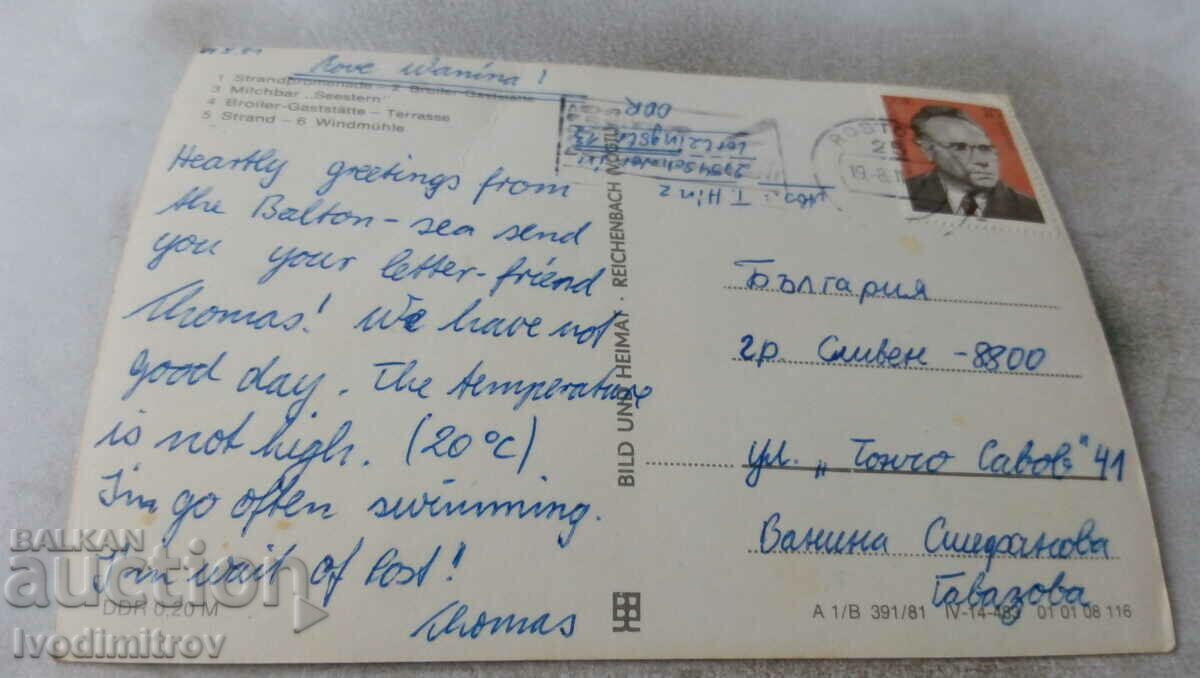 Love Wanina!
1 Strandpromenade – 2 Broiler-Gaststätte
3 Milchbar „Seestern"
4 Broiler-Gaststätte – Terrasse
5 Strand – 6 Windmühle
Heartly greetings from
the Balton-sea send
you your letter-friend
Thomas! We have not
good day. The temperature
is not high. (20°C)
I'm go often swimming.
I'm wait of post!
Thomas
DDR 0,20 M
BILD UND HEIMAT · REICHENBACH (VOGTL
Abs.: T. Hinz
DDR
19.-8.
България
гр. Сливен - 8800
ул. „Тончо Савов" 41
Ванина Стефанова
Гавазова
A 1/B 391/81 IV-14-483 01 01 08 116
BALKAN
auction
Ivodimitrov